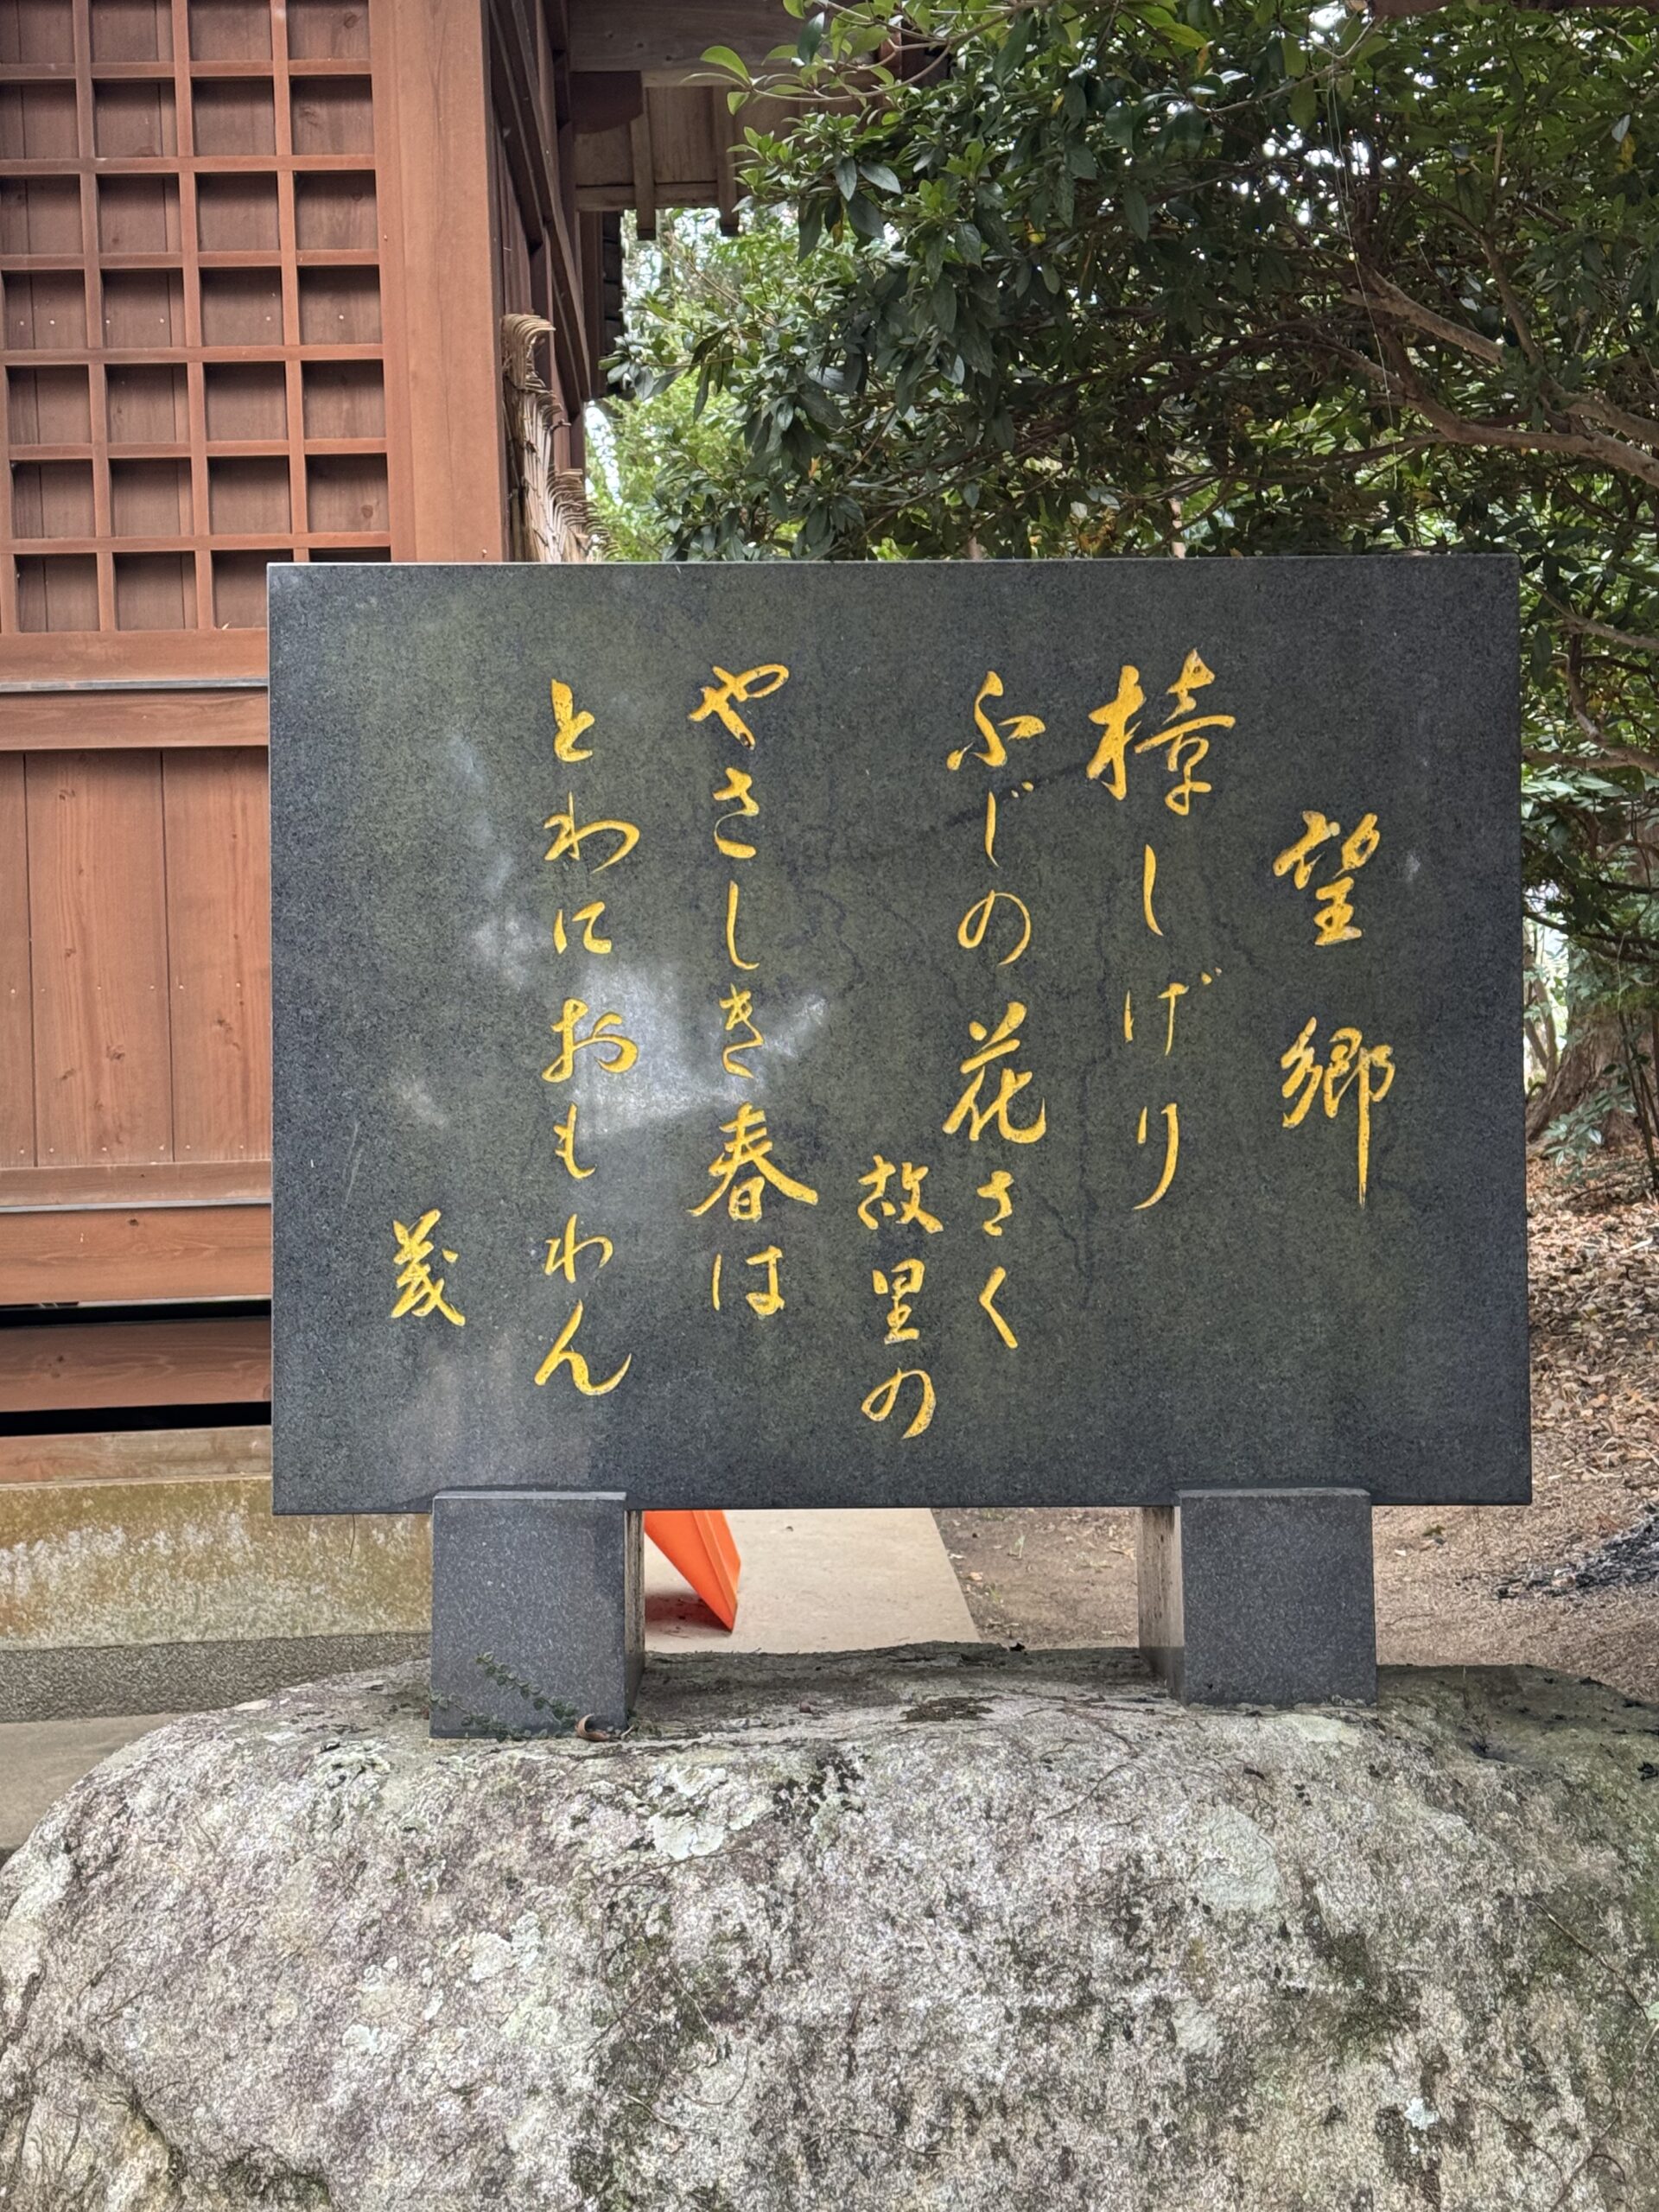 望郷
樟しげり
ふじの花さく
故里の
やさしき春は
とわにおもわん